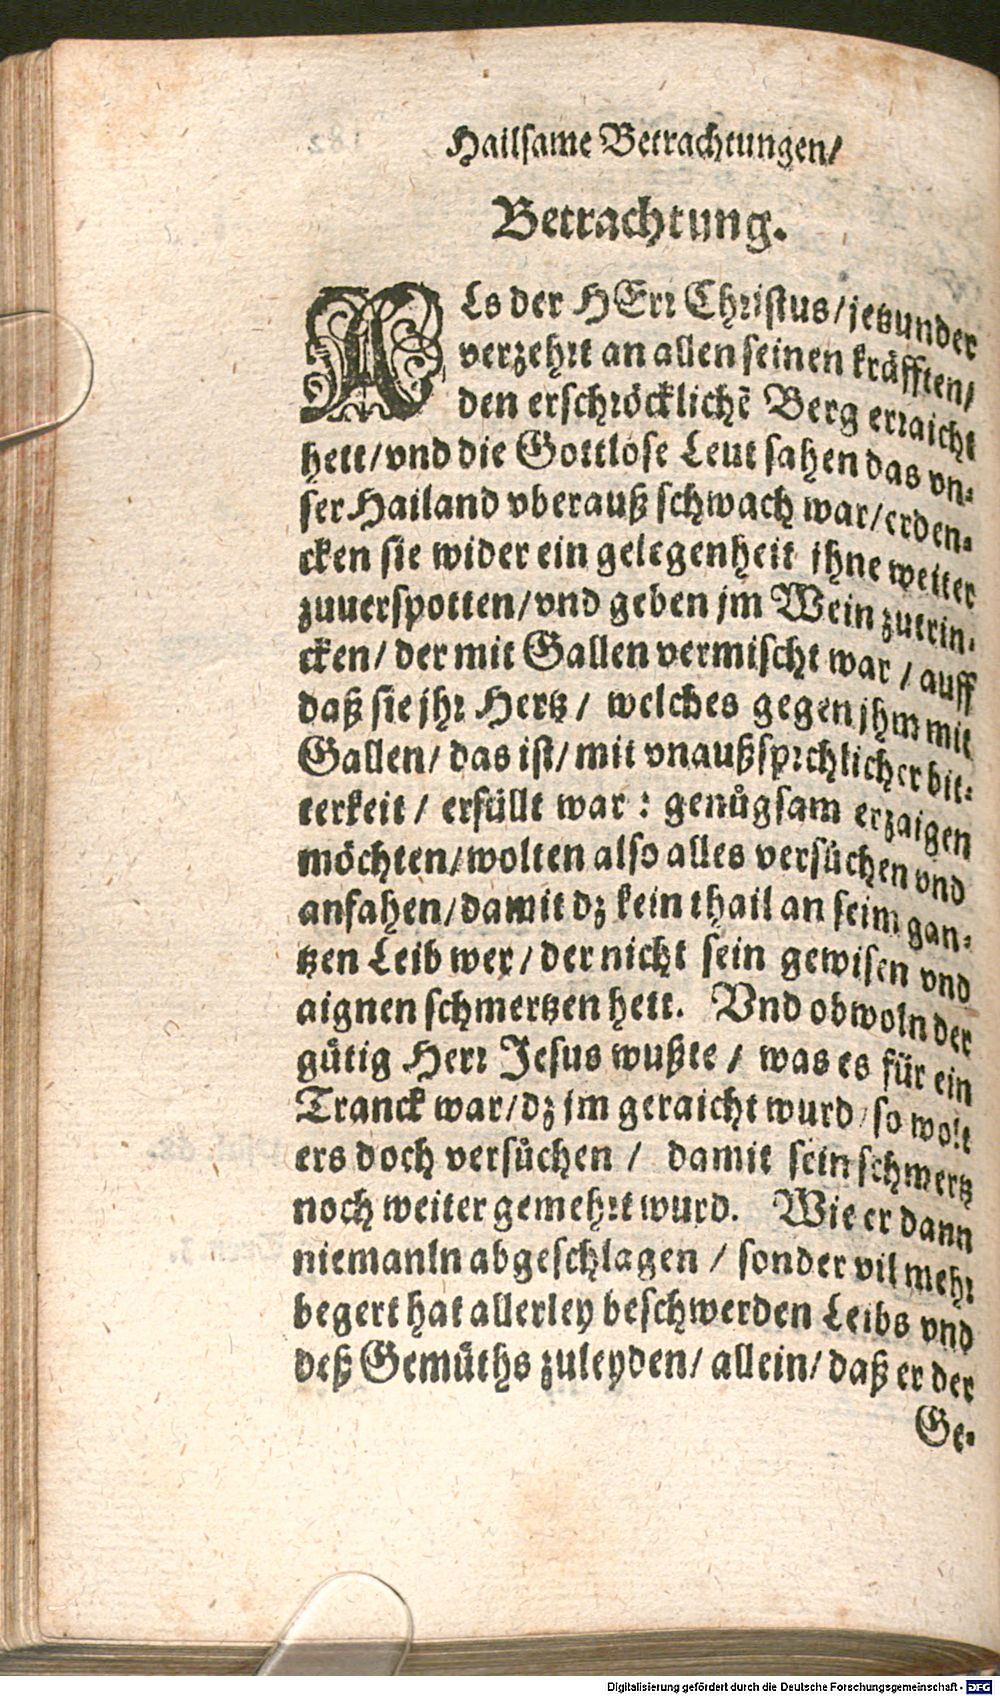 Hailsame Betrachtungen/
Betrachtung.
ALs der HErr Christus/jetzunder
verzehrt an allen seinen kräfften/
den erschröcklichẽ Berg erraicht
hett/vnd die Gottlose Leut sahen das vn-
ser Hailand vberauß schwach war/erden-
cken sie wider ein gelegenheit jhne weiter
zuuerspotten/vnd geben jm Wein zutrin-
cken/ der mit Gallen vermischt war / auff
daß sie jhr Hertz / welches gegen jhm mit
Gallen/ das ist/ mit vnaußsprchlicher bit-
terkeit / erfüllt war : genůgsam erzaigen
möchten/wolten also alles versůchen vnd
anfahen/damit dz kein thail an seim gan-
tzen Leib wer/ der nicht sein gewisen vnd
aignen schmertzen hett. Vnd obwoln der
gůtig Herr Jesus wußte / was es für ein
Tranck war/dz jm geraicht wurd/so wolt
ers doch versůchen / damit sein schmertz
noch weiter gemehrt wurd. Wie er dann
niemanln abgeschlagen / sonder vil mehr
begert hat allerley beschwerden Leibs vnd
deß Gemůths zuleyden/ allein/ daß er der
Ge-
Digitalisierung gefördert durch die Deutsche Forschungsgemeinschaft - DFG